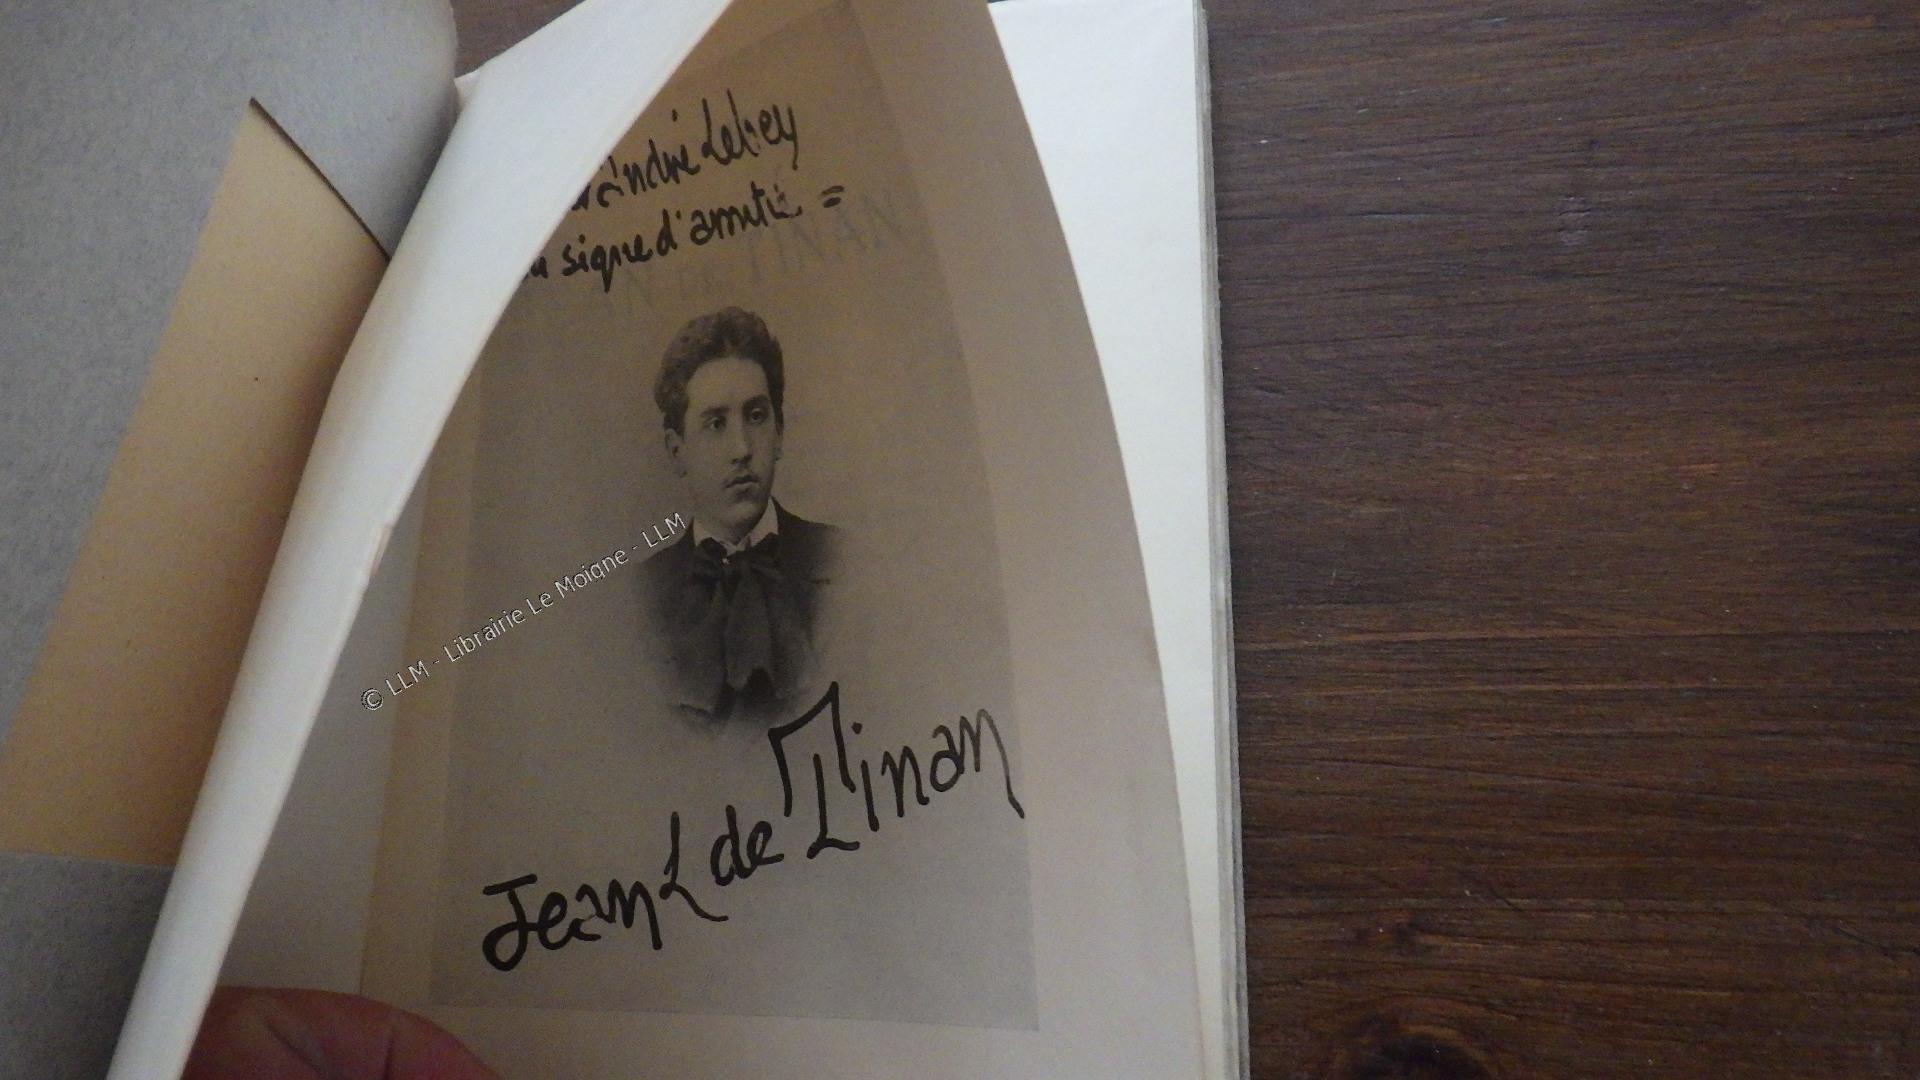 André Lebey
signe d'amitié =
DE TINAN
© LLM - Librairie Le Moigne - LLM
Jean L de Tinan